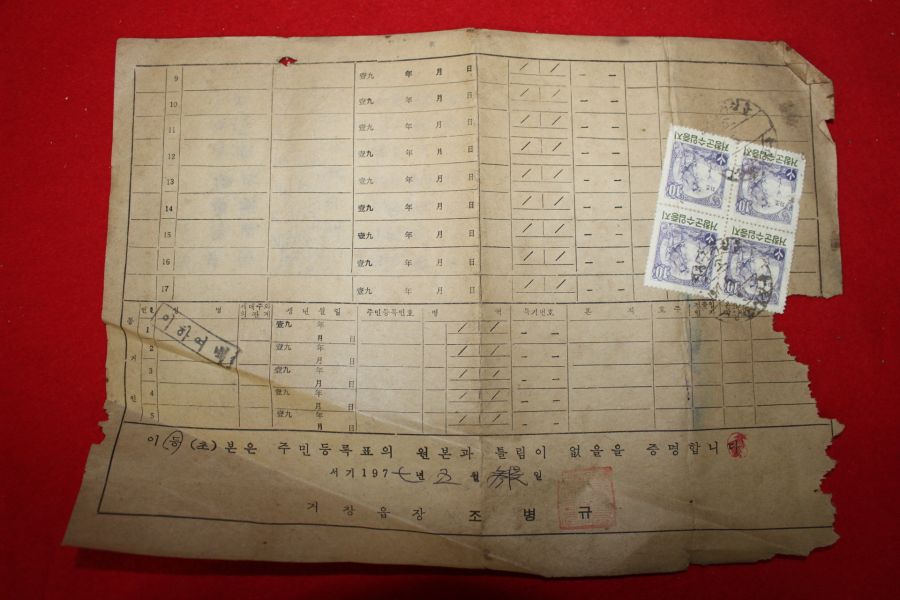 9 壹九 年 月 日
10 壹九 年 月 日
11 壹九 年 月 日
12 壹九 年 月 日
13 壹九 年 月 日
14 壹九 年 月 日
15 壹九 年 月 日
16 壹九 年 月 日
17 壹九 年 月 日
거창군수입증지 거창군수입증지
10 10
거창군수입증지 거창군수입증지
10 10
번호 성 명 생 년 월 일 주민등록번호 병 역 특기번호 본 적 호 주
동 거 인
1 壹九 年 月 日
2 壹九 年 月 日
3 壹九 年 月 日
4 壹九 年 月 日
5 壹九 年 月 日
이하여백
이 (등) (초) 본은 주민등록표의 원본과 틀림이 없음을 증명합니다
서기 197七년 五월 일
거 창 읍 장 조 병 규